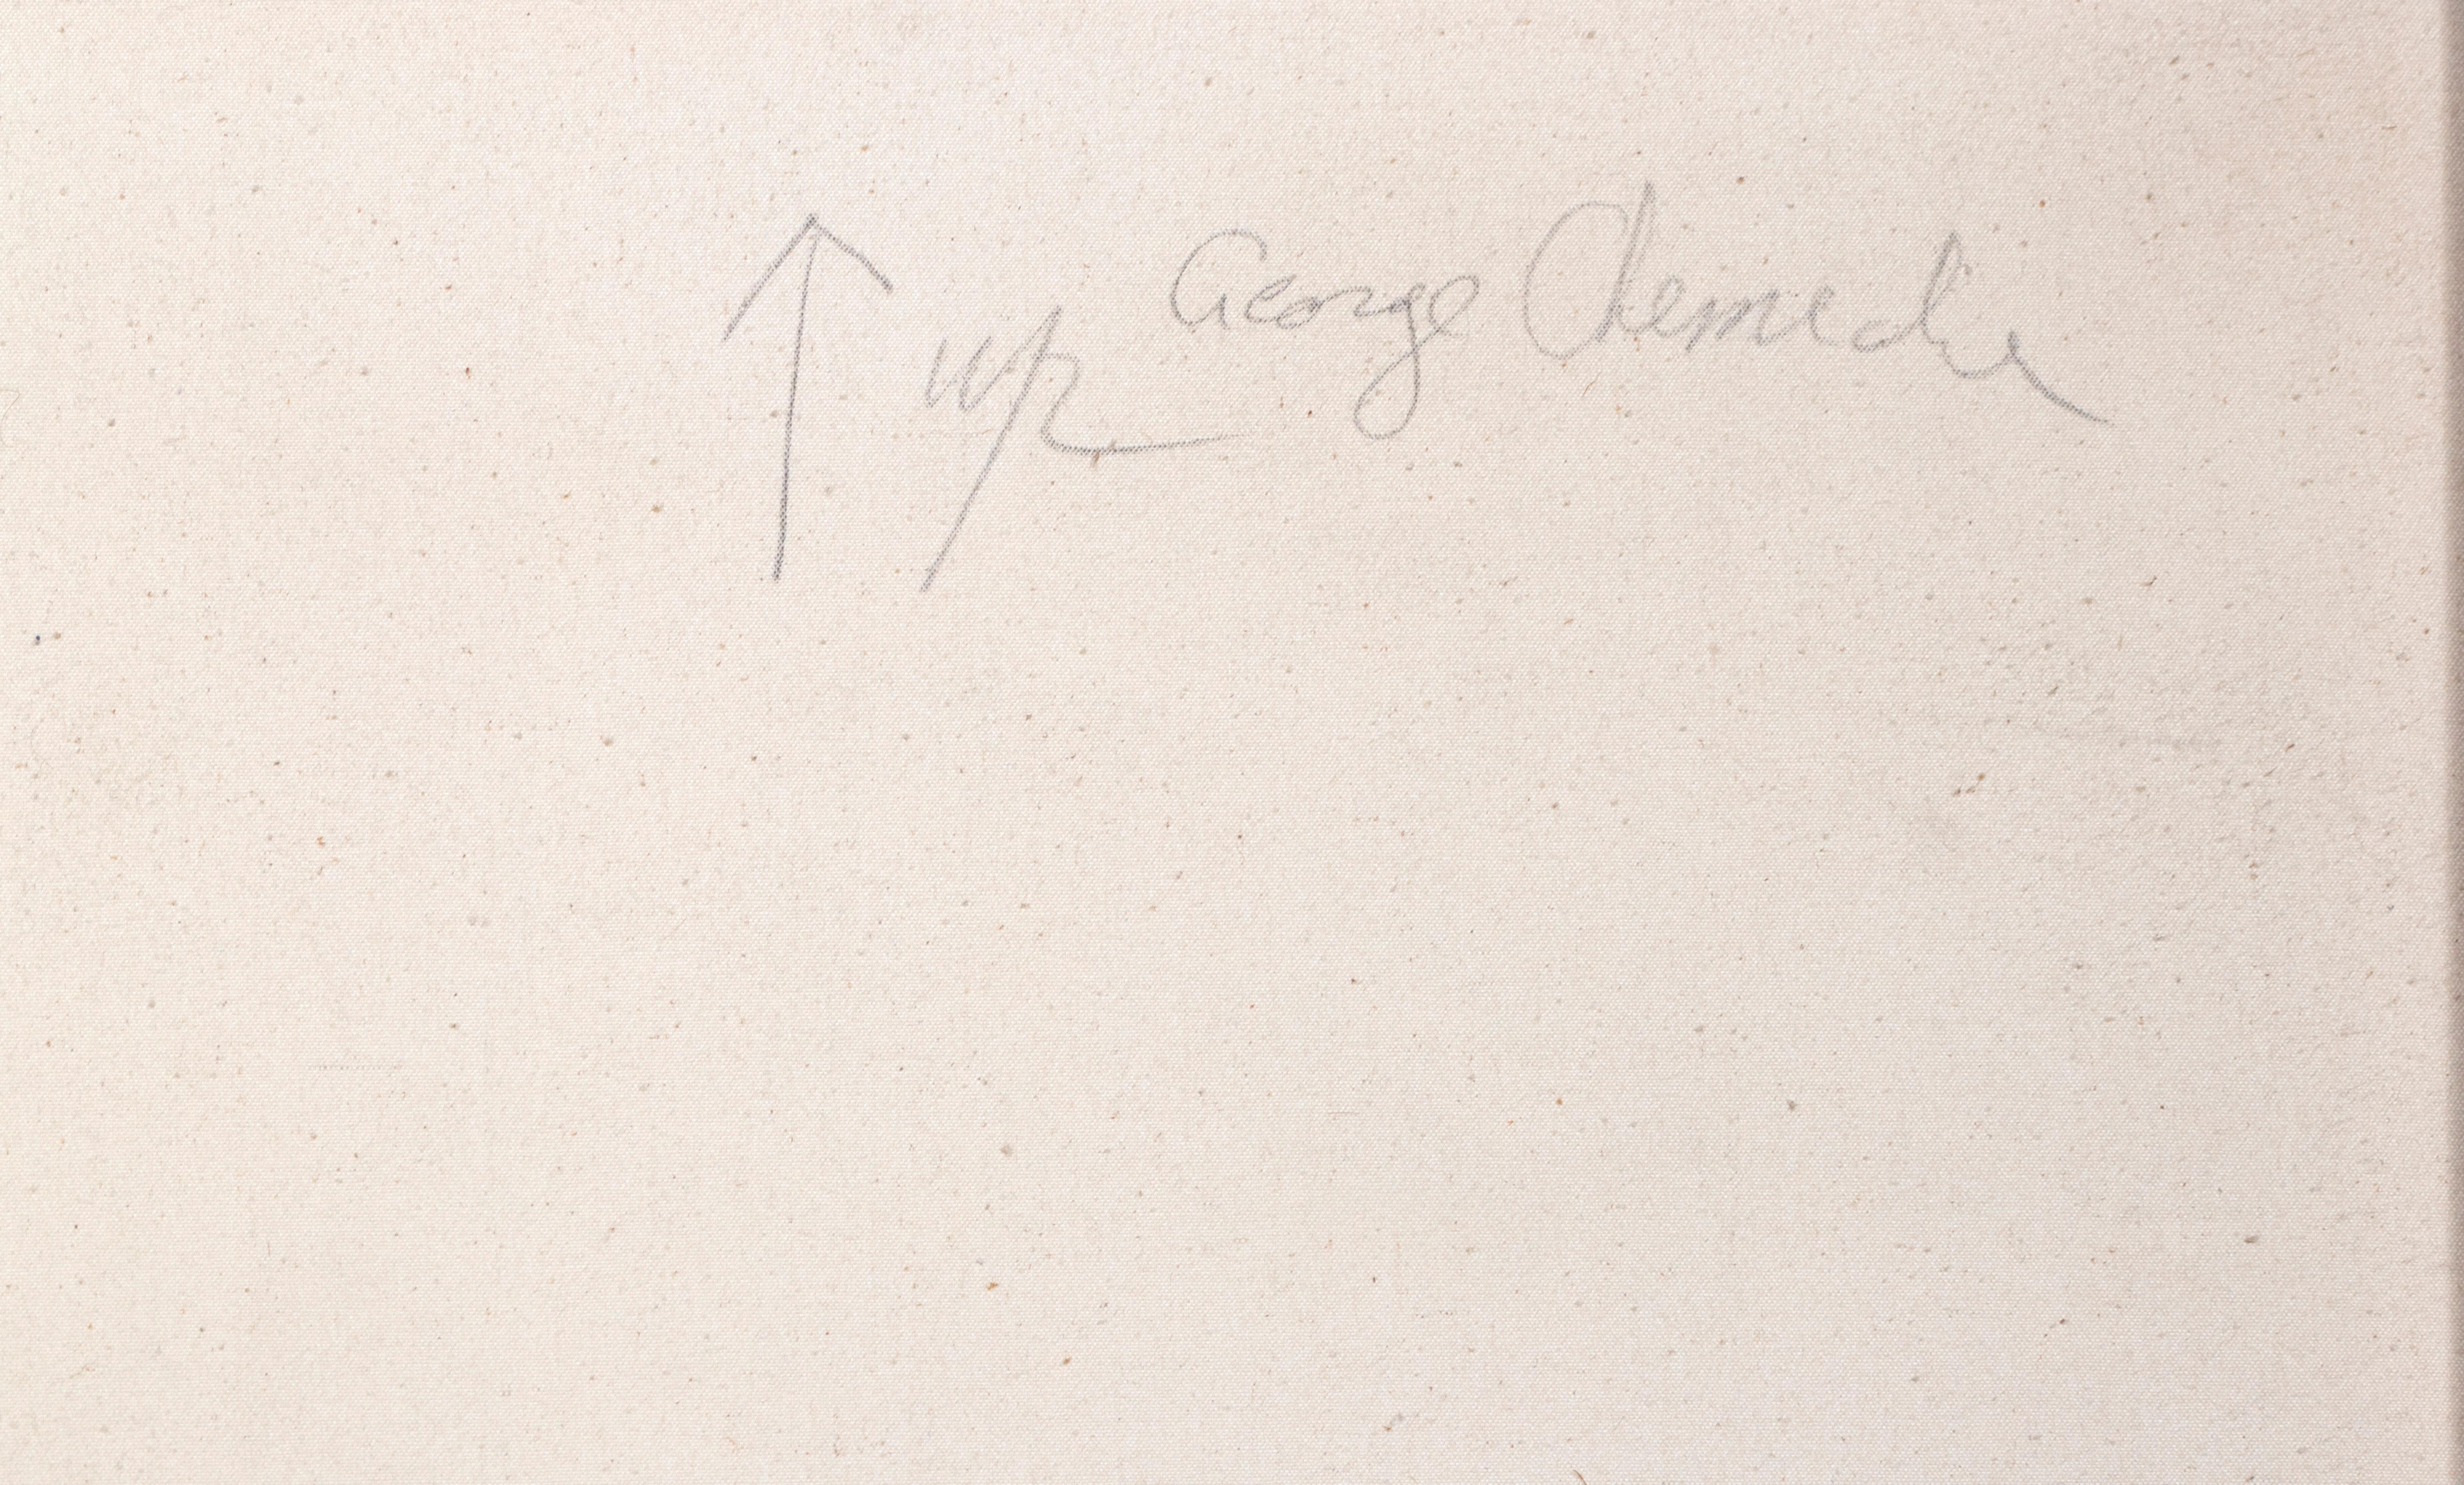 ↑ up George Chemeche